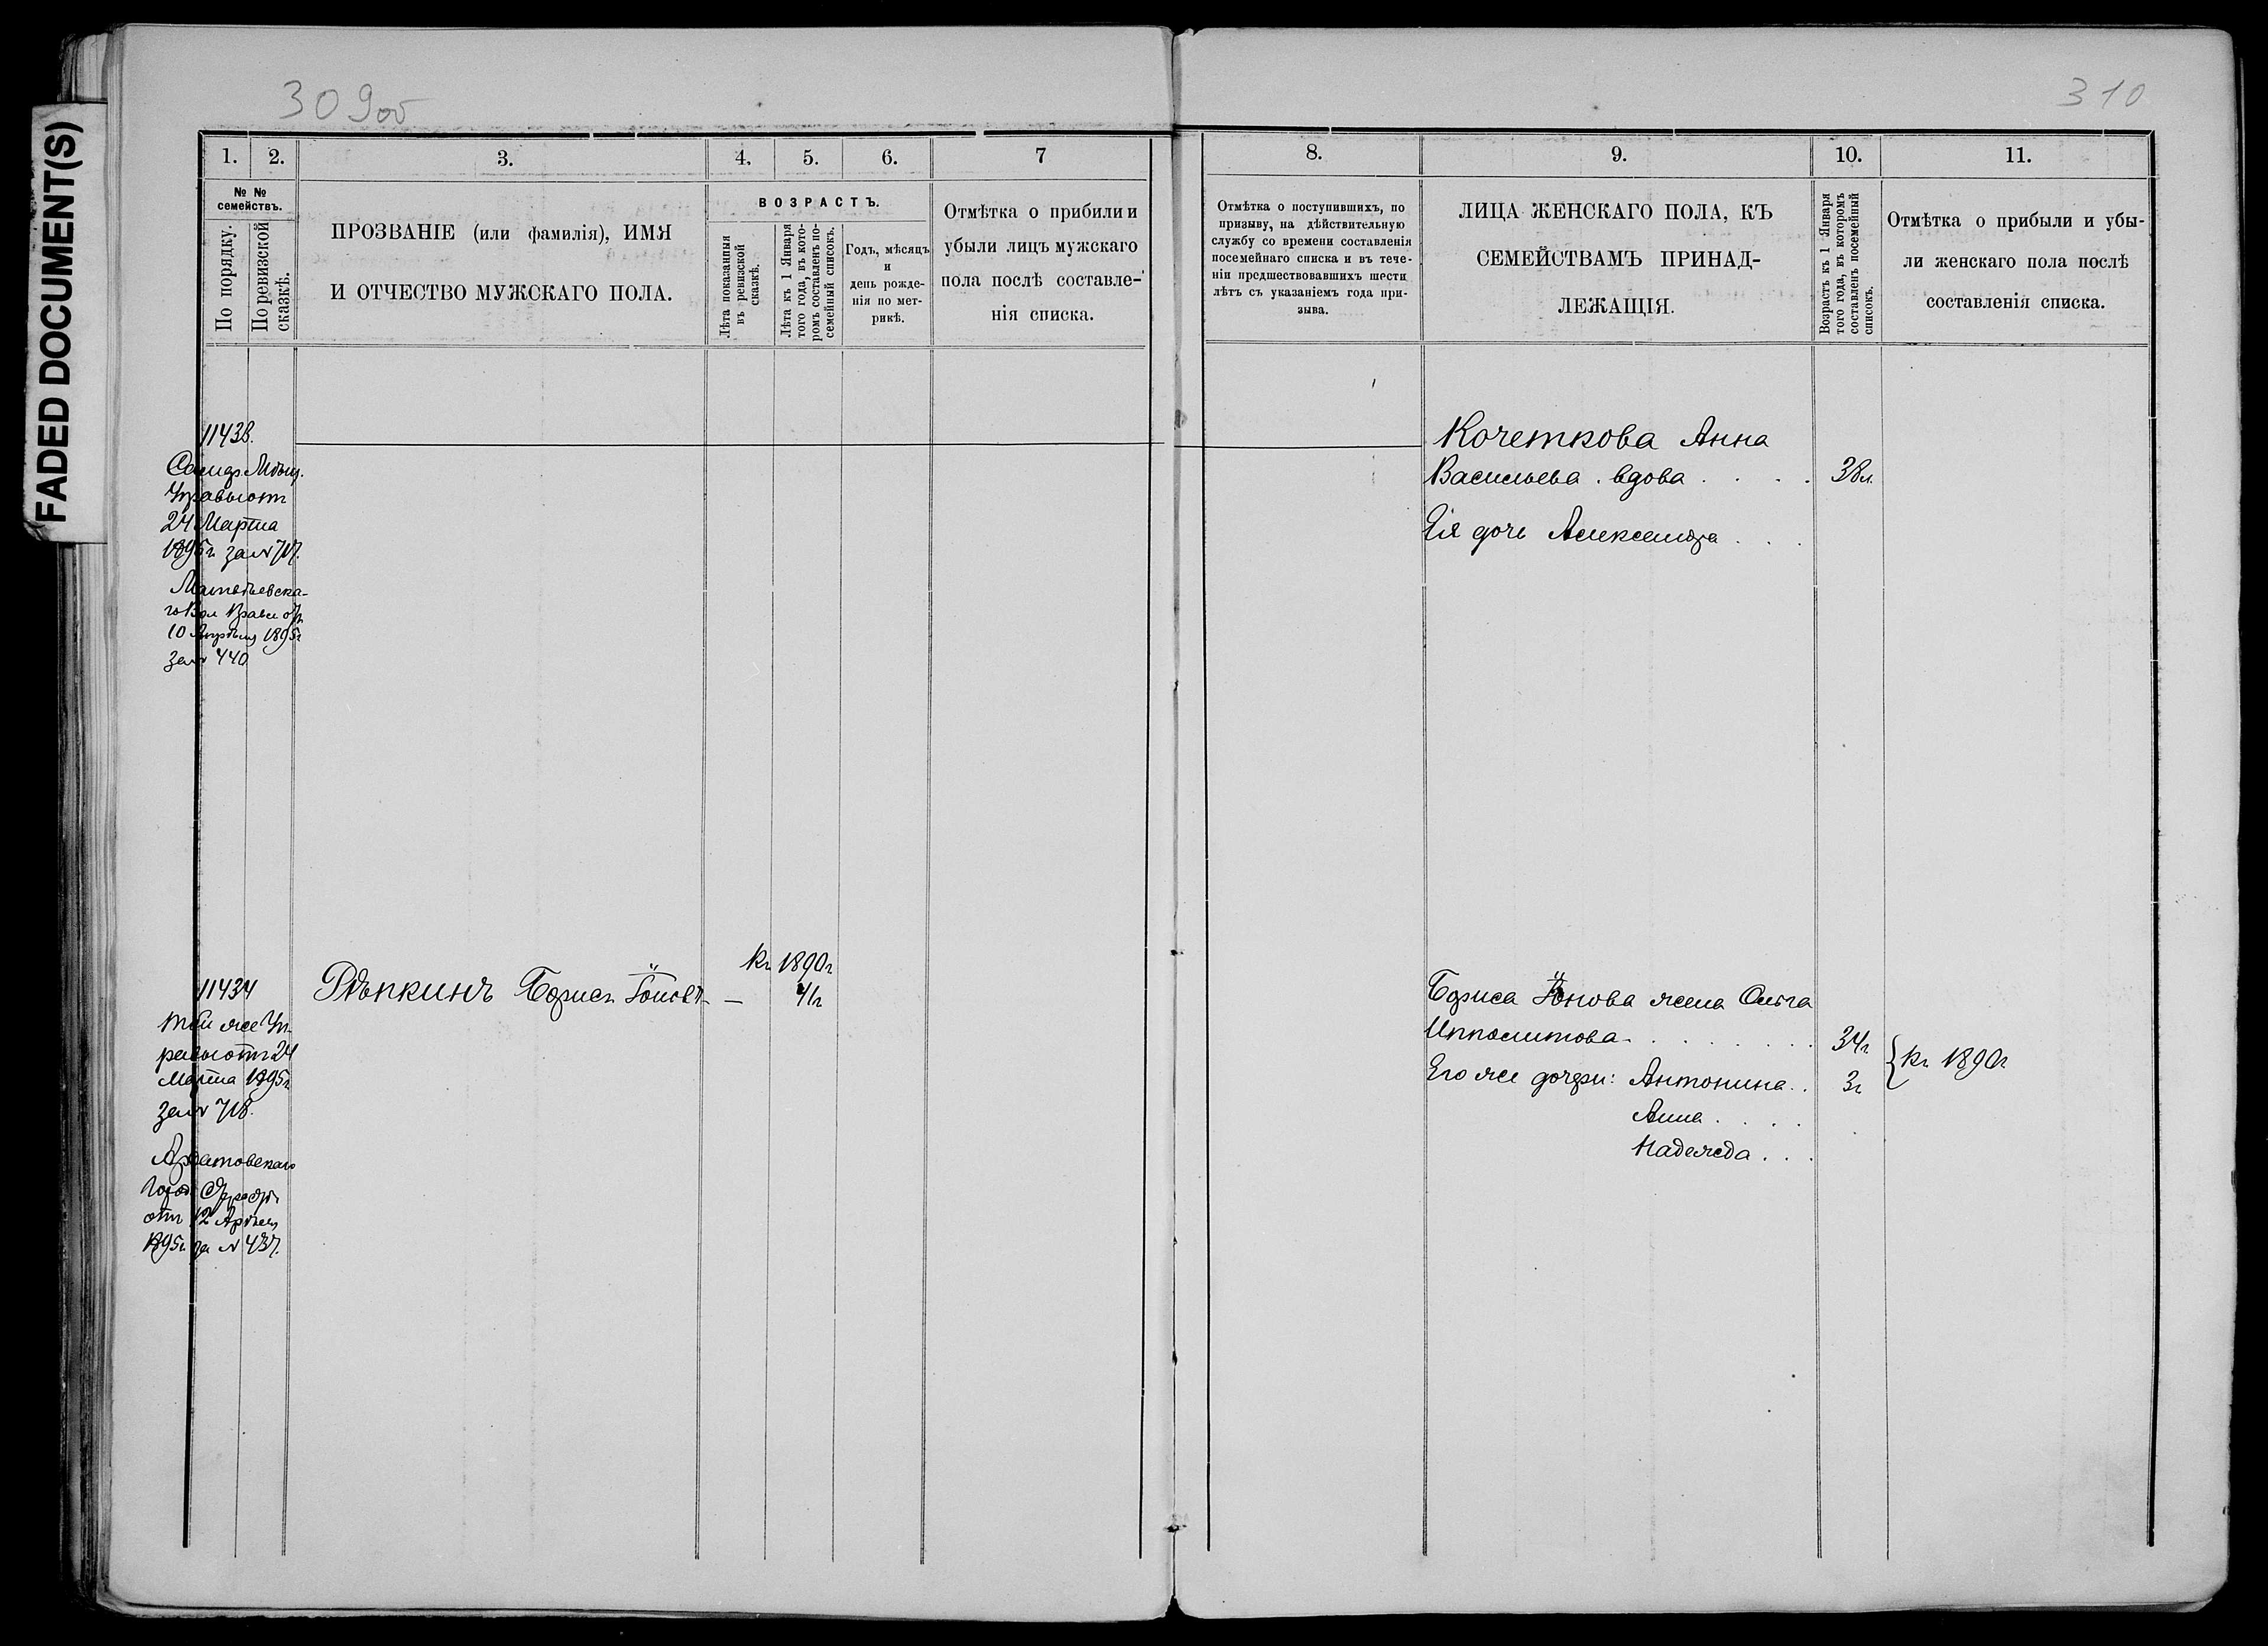 FADED DOCUMENT(S)
309об
1. 2. 3. 4. 5. 6. 7
№ №
семействъ.
По порядку.
По ревизской
сказкѣ.
ПРОЗВАНІЕ (или фамилія), ИМЯ
И ОТЧЕСТВО МУЖСКАГО ПОЛА.
ВОЗРАСТЪ.
Лѣта показанныя
въ ревизской
сказкѣ.
Лѣта къ 1 Января
того года, въ кото-
ромъ составленъ по-
семейный списокъ.
Годъ, мѣсяцъ
и
день рожде-
нія по мет-
рикѣ.
Отмѣтка о прибыли и
убыли лицъ мужскаго
пола послѣ составле-
нія списка.
11438.
Управы от
24 Марта
1895г. за № 717.
10 Апрѣля 1895г
за № 440
11434
Рѣпкинъ Борисъ Іоновъ —
Къ 1890г
41г
той же Уп-
равы от 24
Марта 1895г
за № 718.
Ардатовскаго
Город.
от 12 Апрѣля
1895г. за № 437.
310
8. 9. 10. 11.
Отмѣтка о поступившихъ, по
призыву, на дѣйствительную
службу со времени составленія
посемейнаго списка и въ тече-
ніи предшествовавшихъ шести
лѣтъ съ указаніемъ года при-
зыва.
ЛИЦА ЖЕНСКАГО ПОЛА, КЪ
СЕМЕЙСТВАМЪ ПРИНАД-
ЛЕЖАЩІЯ.
Возрастъ къ 1 Января
того года, въ которомъ
составленъ посемейный
списокъ.
Отмѣтка о прибыли и убы-
ли женскаго пола послѣ
составленія списка.
Кочеткова Анна
Васильева . вдова . . . . 38л.
Ея дочь Александра . . .
Бориса Іонова жена Ольга
Ипполитова . . . . . . . . 34г
Его же дочери: Антонина . . 3г
{ Къ 1890г
Анна . . . .
Надежда . . .